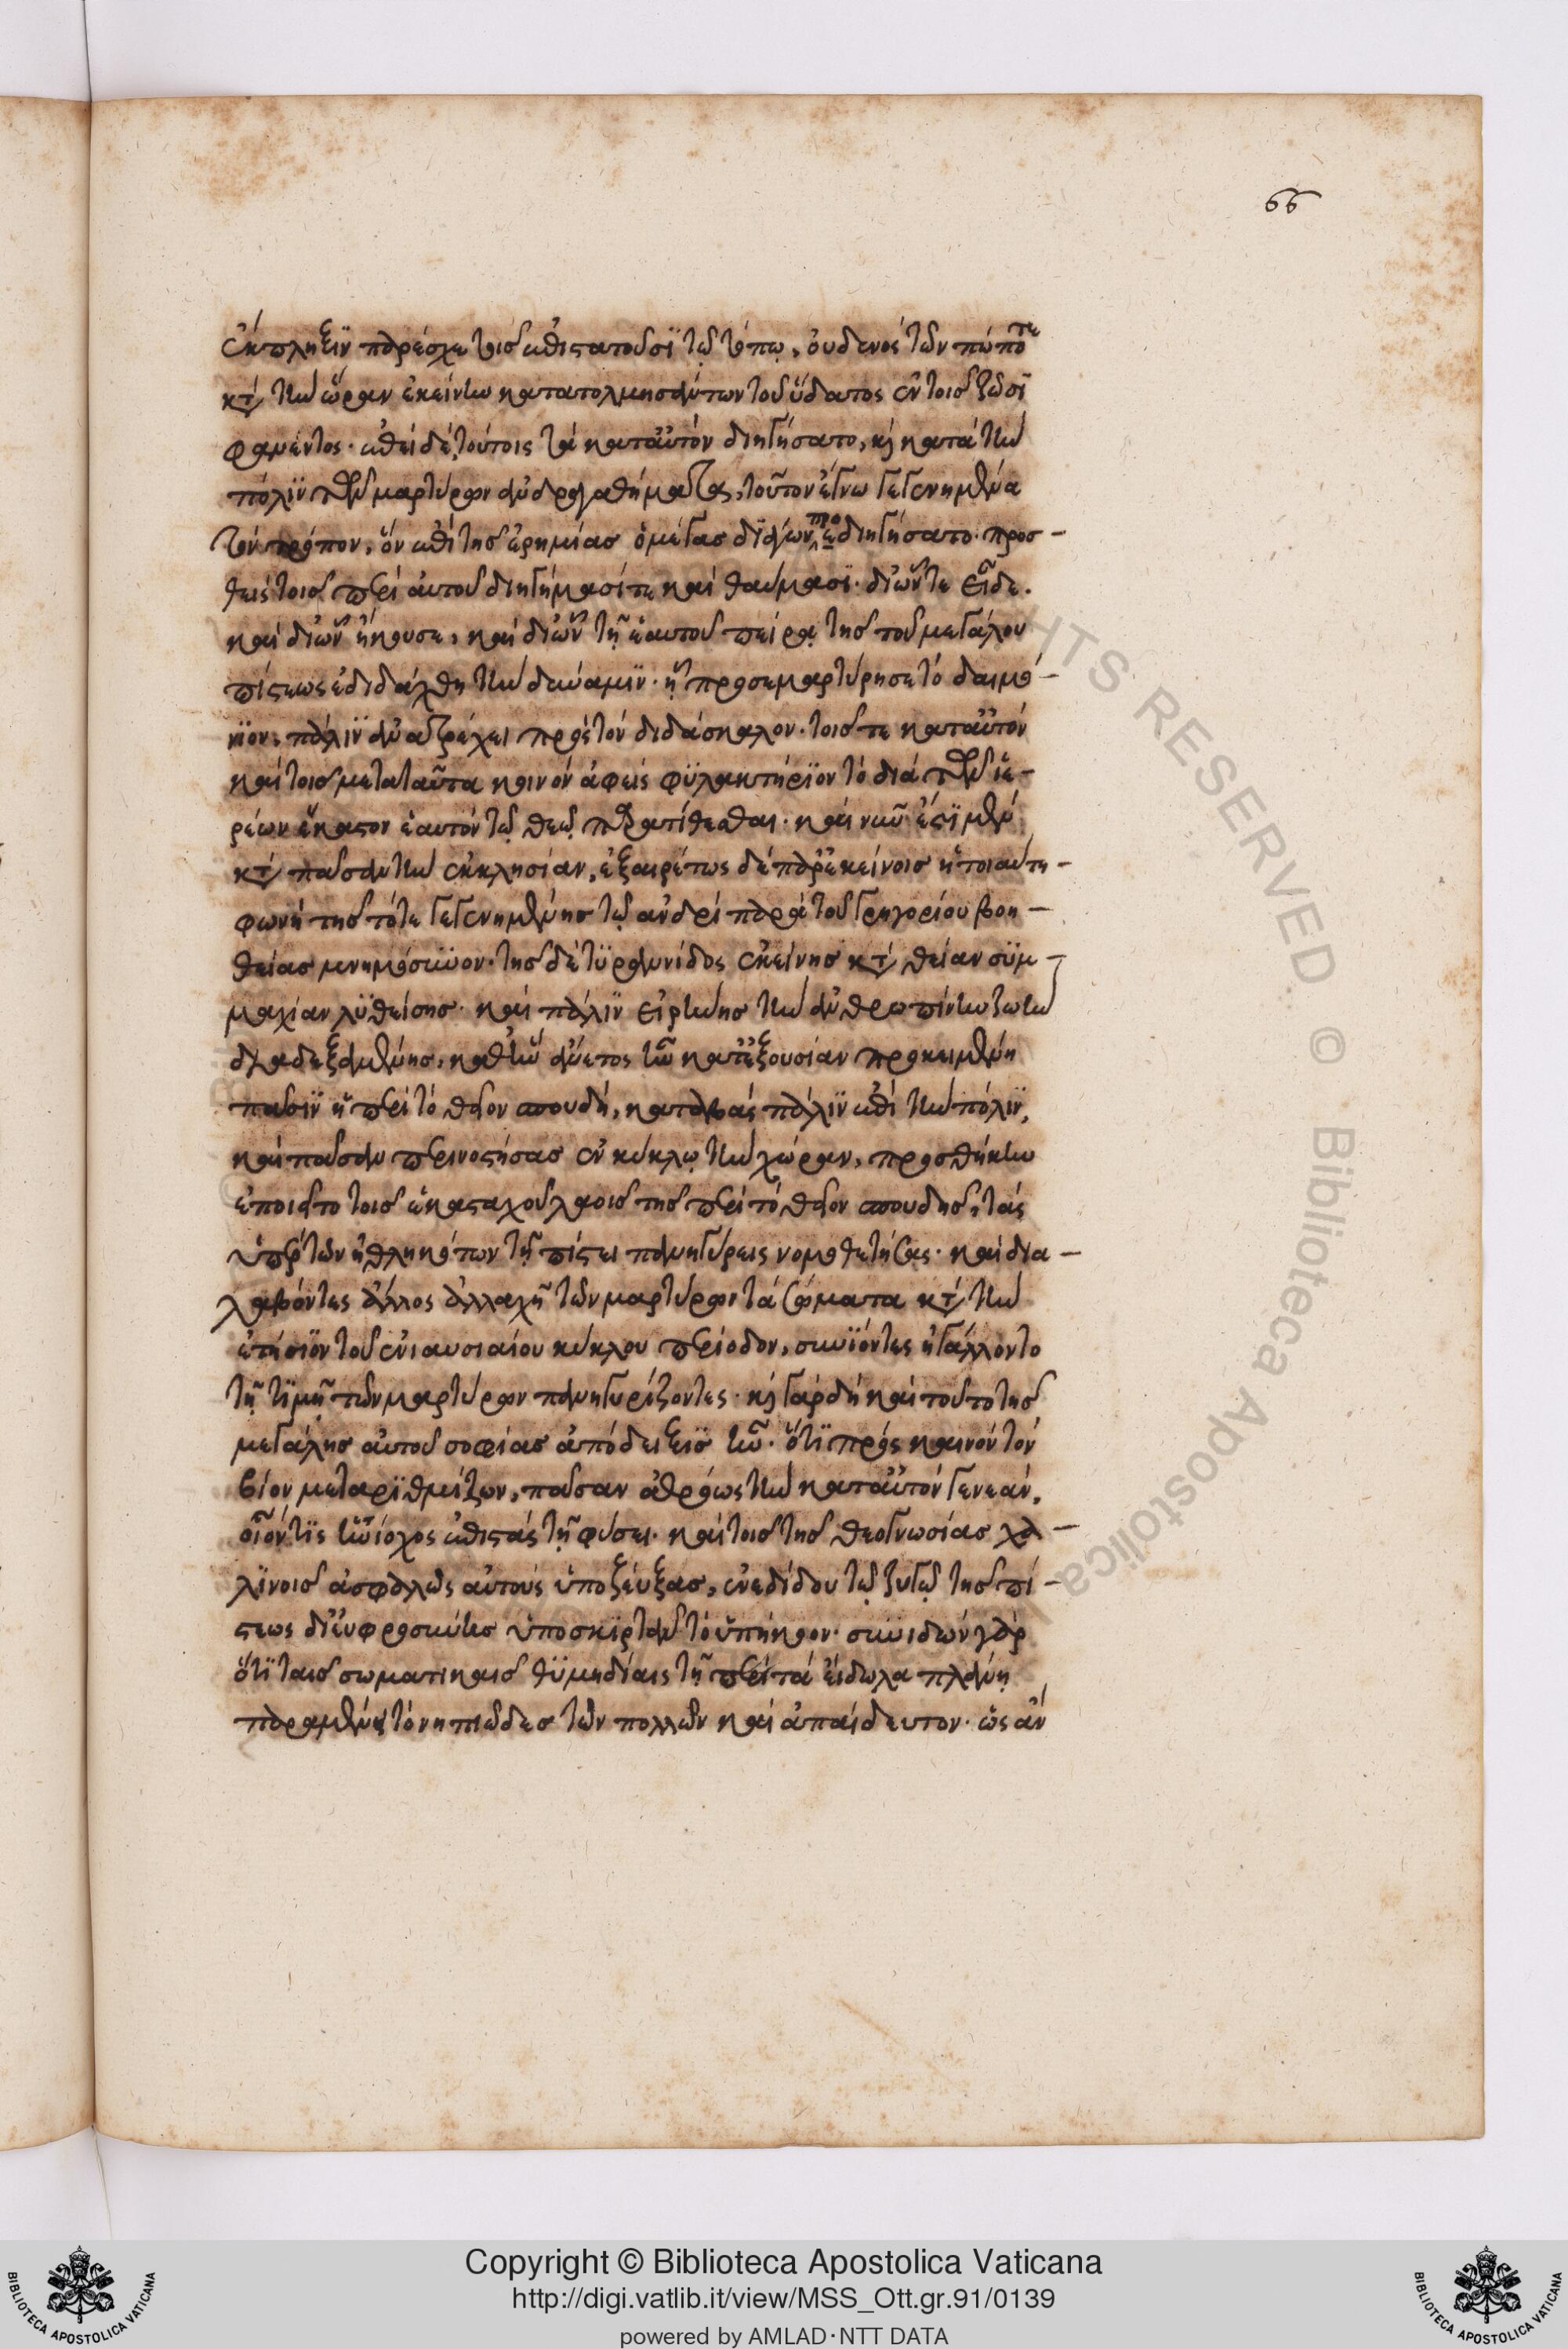 66
ἔκπληξιν παρέσχε τοῖς ἐπιστατοῦσι τῷ τόπῳ, οὐδενὸς τῶν πώποτε
κατὰ τὴν ὥραν ἐκείνην κατατολμησάντων τοῦ ὕδατος ἐν τοῖς ζῶσι
φαμέντος. ἐπεὶ δὲ τούτοις τὰ κατ' αὐτὸν διηγήσατο, καὶ κατὰ τὴν
πόλιν τῶν μαρτύρων ἀνδραγαθήματα, τοῦτον ἔγνω γεγενημένα
τὸν τρόπον, ὃν ἐπὶ τῆς ἐρημίας ὁ μέγας διϊδὼν προεδιηγήσατο. προσ-
θεὶς τοῖς περὶ αὐτοῦ διηγήμασί τε καὶ θαύμασι. δι' ὧν τε εἶδε.
καὶ δι' ὧν ἤκουσε, καὶ δι' ὧν τῇ ἑαυτοῦ πείρᾳ τῆς τοῦ μεγάλου
πίστεως ἐδιδάχθη τὴν δύναμιν. ᾗ προσεμαρτύρησε τὸ δαιμό-
νιον, πάλιν ἀνατρέχει πρὸς τὸν διδάσκαλον. τοῖς τε κατ' αὐτὸν
καὶ τοῖς μετὰ ταῦτα κοινὸν ἀφεὶς φυλακτήριον τὸ διὰ τῶν ἱε-
ρέων ἕκαστον ἑαυτὸν τῷ θεῷ παρατίθεσθαι. καὶ νῦν ἐστι μὲν
κατὰ πᾶσαν τὴν ἐκκλησίαν, ἐξαιρέτως δὲ παρ' ἐκείνοις ἡ τοιαύτη
φωνὴ τῆς τότε γεγενημένης τῷ ἀνδρὶ παρὰ τοῦ Γρηγορίου βοη-
θείας μνημόσυνον. τῆς δὲ τυραννίδος ἐκείνης κατὰ θείαν συμ-
μαχίαν λυθείσης. καὶ πάλιν εἰρήνης τὴν ἀνθρωπίνην ζωὴν
διαδεξαμένης, καθ' ἣν ἄνετος ἦν κατ' ἐξουσίαν προκειμένη
πᾶσιν ἡ περὶ τὸ θεῖον σπουδή, καταβὰς πάλιν ἐπὶ τὴν πόλιν,
καὶ πᾶσαν περινοστήσας ἐν κύκλῳ τὴν χώραν, προσθήκην
ἐποιεῖτο τοῖς ἑκασταχοῦ λαοῖς τῆς περὶ τὸ θεῖον σπουδῆς, τὰς
ὑπὲρ τῶν ἠθληκότων τῇ πίστει πανηγύρεις νομοθετήσας. καὶ δια-
λαβόντες ἄλλος ἀλλαχῆ τῶν μαρτύρων τὰ σώματα κατὰ τὴν
ἐτήσιον τοῦ ἐνιαυσιαίου κύκλου περίοδον, συνιόντες ἠγάλλοντο
τῇ τιμῇ τῶν μαρτύρων πανηγυρίζοντες. καὶ γὰρ δὴ καὶ τοῦτο τῆς
μεγάλης αὐτοῦ σοφίας ἀπόδειξις ἦν. ὅτι πρὸς καινὸν τὸν
βίον μεταρυθμίζων, πᾶσαν ἀθρόως τὴν κατ' αὐτὸν γενεάν,
οἷόν τις ἡνίοχος ἐπιστὰς τῇ φύσει. καὶ τοῖς τῆς θεογνωσίας χα-
λινοῖς ἀσφαλῶς αὐτοὺς ὑποζεύξας, ἐνεδίδου τῷ ζυγῷ τῆς πί-
στεως δι' εὐφροσύνης ὑποσκιρτᾶν τὸ ὑπήκοον. συνιδὼν γὰρ
ὅτι ταῖς σωματικαῖς θυμηδίαις τῇ περὶ τὰ εἴδωλα πλάνῃ
παραμένει τὸ νηπιῶδες τῶν πολλῶν καὶ ἀπαίδευτον. ὡς ἂν